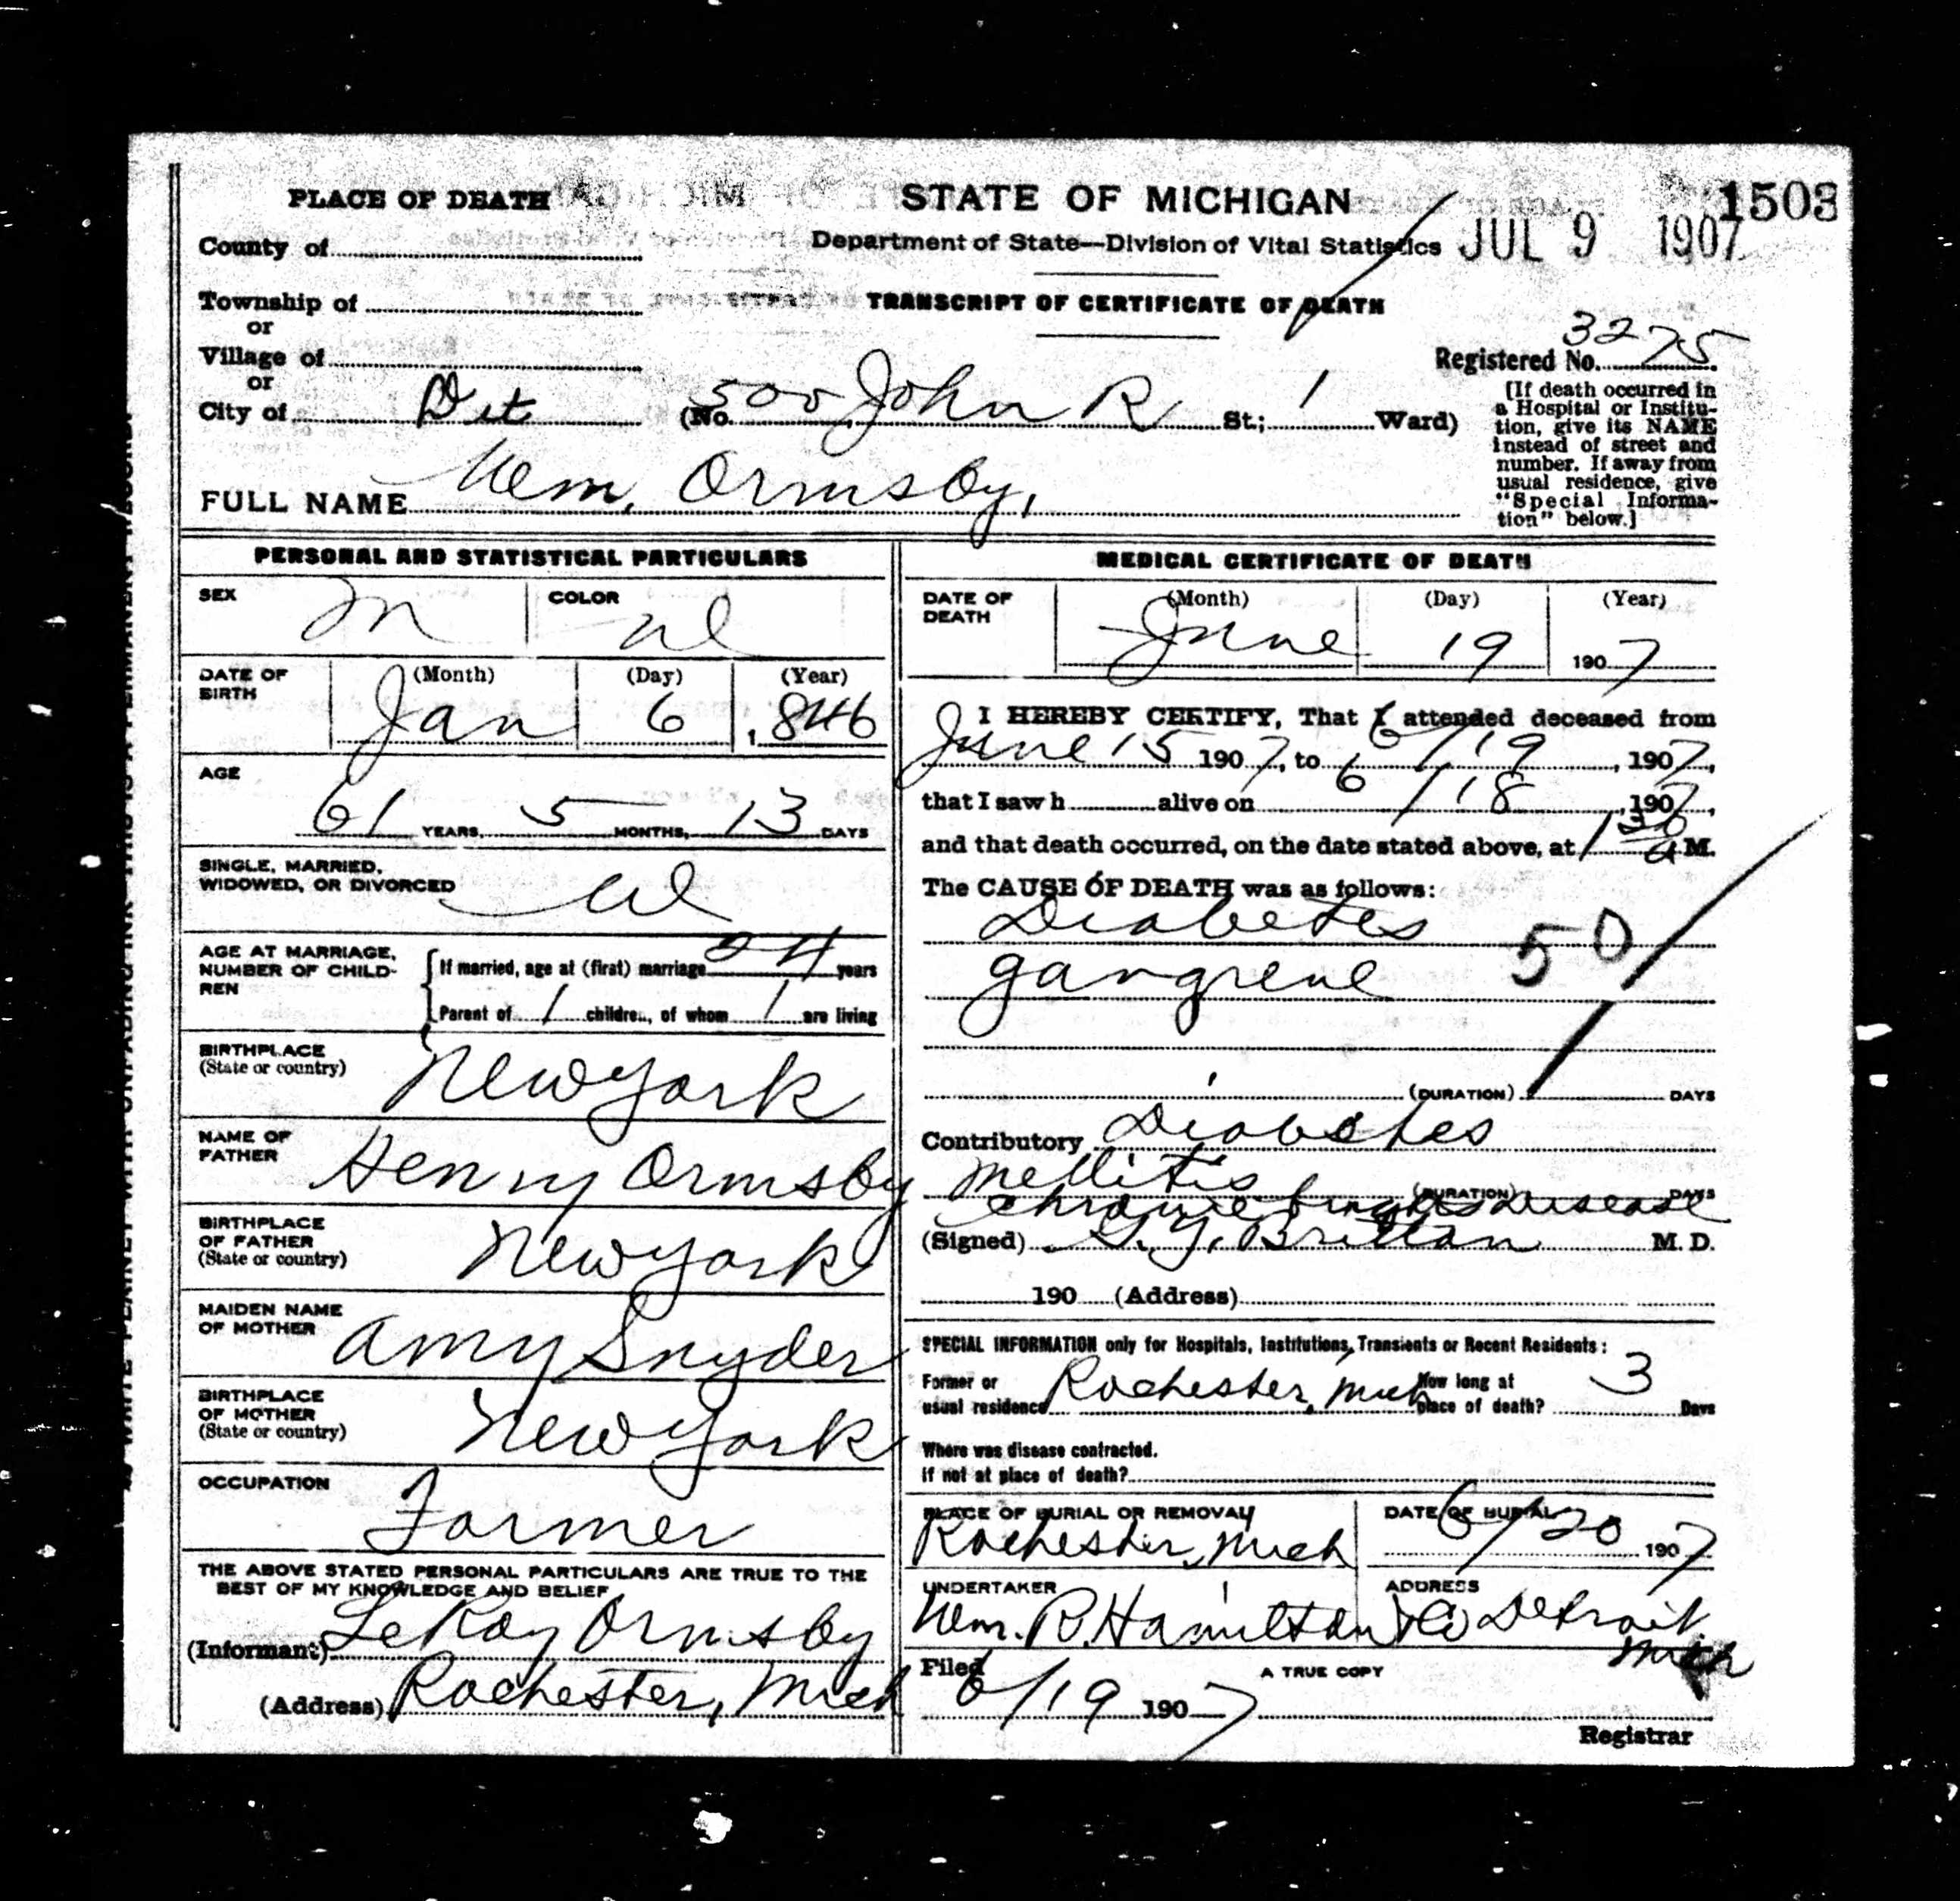 1503
PLACE OF DEATH
STATE OF MICHIGAN
County of
Department of State—Division of Vital Statistics
JUL 9 1907
Township of
TRANSCRIPT OF CERTIFICATE OF DEATH
or
Village of
Registered No. 3275
or
City of Det (No. 500 John R St.; 1 Ward)
[If death occurred in
a Hospital or Institu-
tion, give its NAME
instead of street and
number. If away from
usual residence, give
"Special Informa-
tion" below.]
FULL NAME Wm. Ormsby,
PERSONAL AND STATISTICAL PARTICULARS
SEX M COLOR W
DATE OF BIRTH (Month) (Day) (Year)
Jan 6 1846
AGE
61 YEARS, 5 MONTHS, 13 DAYS
SINGLE, MARRIED,
WIDOWED, OR DIVORCED W
AGE AT MARRIAGE,
NUMBER OF CHILD-
REN
If married, age at (first) marriage 24 years
Parent of 1 children, of whom 1 are living
BIRTHPLACE
(State or country) New York
NAME OF
FATHER Henry Ormsby
BIRTHPLACE
OF FATHER
(State or country) New York
MAIDEN NAME
OF MOTHER Amy Snyder
BIRTHPLACE
OF MOTHER
(State or country) New York
OCCUPATION
Farmer
THE ABOVE STATED PERSONAL PARTICULARS ARE TRUE TO THE
BEST OF MY KNOWLEDGE AND BELIEF
(Informant) LeRoy Ormsby
(Address) Rochester, Mich
MEDICAL CERTIFICATE OF DEATH
DATE OF DEATH (Month) (Day) (Year)
June 19 1907
I HEREBY CERTIFY, That I attended deceased from
June 15 1907, to 6/19, 1907,
that I saw h alive on 6/18, 1907,
and that death occurred, on the date stated above, at 1 30 a M.
The CAUSE OF DEATH was as follows:
Diabetes
gangrene
50
(DURATION) DAYS
Contributory Diabetes
Mellitis (DURATION) DAYS
Chronic brights disease
(Signed) Brittan M. D.
190 (Address)
SPECIAL INFORMATION only for Hospitals, Institutions, Transients or Recent Residents:
Former or
usual residence Rochester, Mich
How long at
place of death? 3 Days
Where was disease contracted.
if not at place of death?
PLACE OF BURIAL OR REMOVAL
Rochester, Mich
DATE OF BURIAL
6/20 1907
UNDERTAKER
Wm. R. Hamilton & Co
ADDRESS
Detroit
Mich
Filed 6/19 1907
A TRUE COPY
Registrar